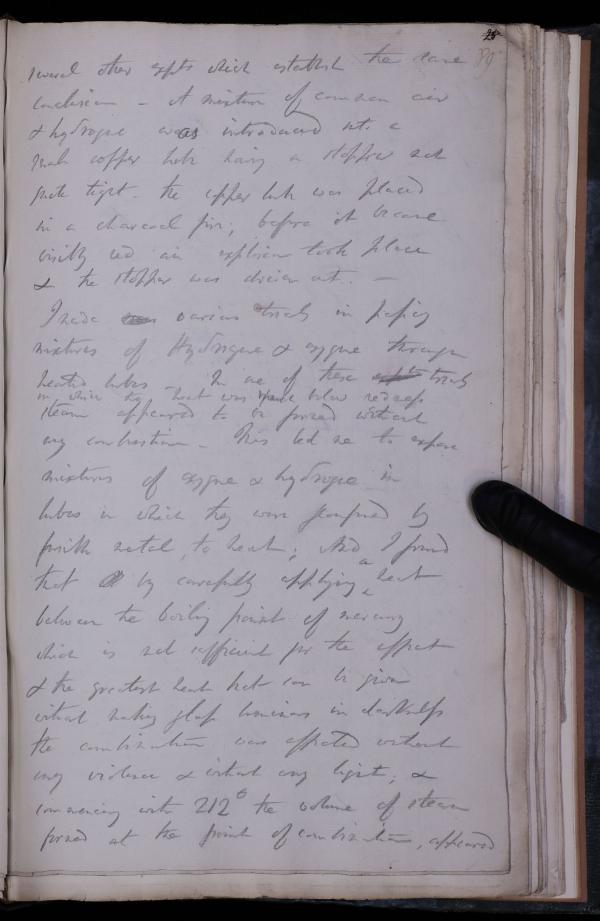 25
89
several other expts which establish the same
conclusion – A mixture of common air
& hydrogene was introduced into a
small copper tube having a stopper not
quite tight. the copper tube was placed
in a charcoal fire; before it became
visibly red an explosion took place
& the stopper was driven out. –
I made various trials in passing
mixtures of Hydrogene & oxygene through
heated tubes – In one of these trials
in which the heat was below redness
steam appeared to be formed without
any combustion – This led me to expose
mixtures of oxygene & hydrogene in
tubes in which they were confined by
fusible metal, to heat; And I found
that by carefully applying a heat
between the boiling point of mercury
which is not sufficient for the effect
& the greatest heat that can be given
without making glass luminous in darkness
the combination was effected without
any violence & without any light; &
commencing with 212° the volume of steam
formed at the point of combination, appeared